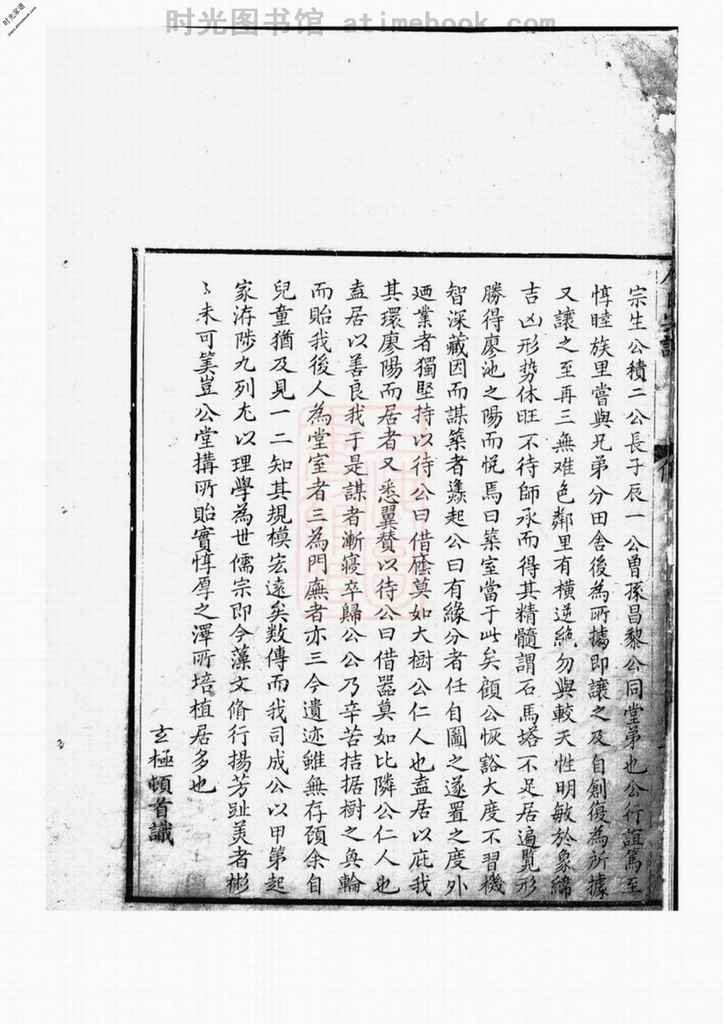 时光图书馆 atimebook.com
时光家谱
www.atimebook.com
宗生公積二公長子辰一公曾孫昌黎公同堂弟也公行誼篤至
惇睦族里嘗與兄弟分田舍後為所據即讓之及自創復為所據
又讓之至再三無难色鄰里有橫逆絕勿與較天性明敏於象緯
吉凶形势休旺不待師承而得其精髓謂石馬塔不足居遍覽形
勝得廖池之陽而悦焉曰築室當于此矣顧公恢豁大度不習機
智深藏因而謀築者蠭起公曰有緣分者任自圖之遂置之度外
廼業者獨堅持以待公曰借廕莫如大樹公仁人也盍居以庇我
其環廖陽而居者又悉翼賛以待公曰借噐莫如比隣公仁人也
盍居以善良我于是謀者漸寝卒歸公公乃辛苦拮据樹之奐輪
而貽我後人為堂室者三為門廡者亦三今遺迹雖無存頋余自
兒童猶及見一二知其規模宏遠矣数傳而我司成公以甲第起
家洊陟九列尤以理學為世儒宗即今藻文脩行揚芳趾美者彬
〻未可筭豈公堂搆所貽實惇厚之澤所培植居多也
玄極頓首識